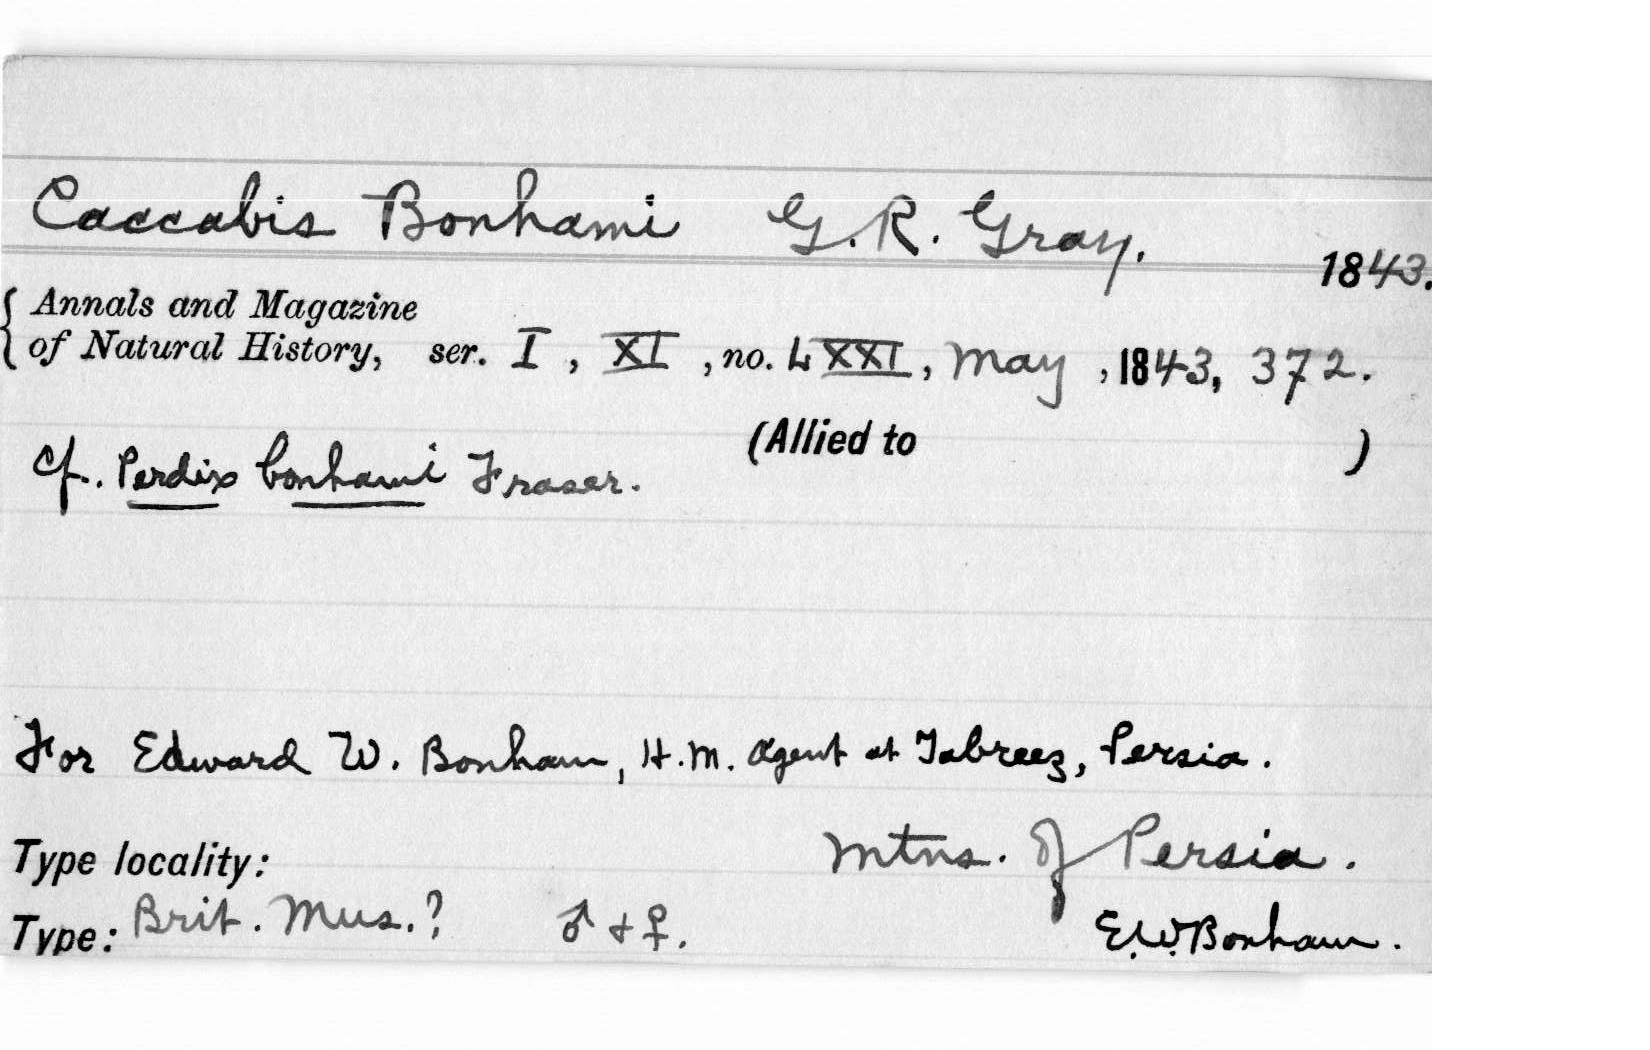 Caccabis Bonhami G. R. Gray.
1843.
Annals and Magazine
of Natural History, ser. I, XI, no. LXXI, May, 1843, 372.
(Allied to )
Cf. Perdix bonhami Fraser.
For Edward W. Bonham, H.M. Agent at Tabreez, Persia.
Type locality: Mtns. of Persia.
Type: Brit. Mus.? ♂ + ♀. E.W. Bonham.